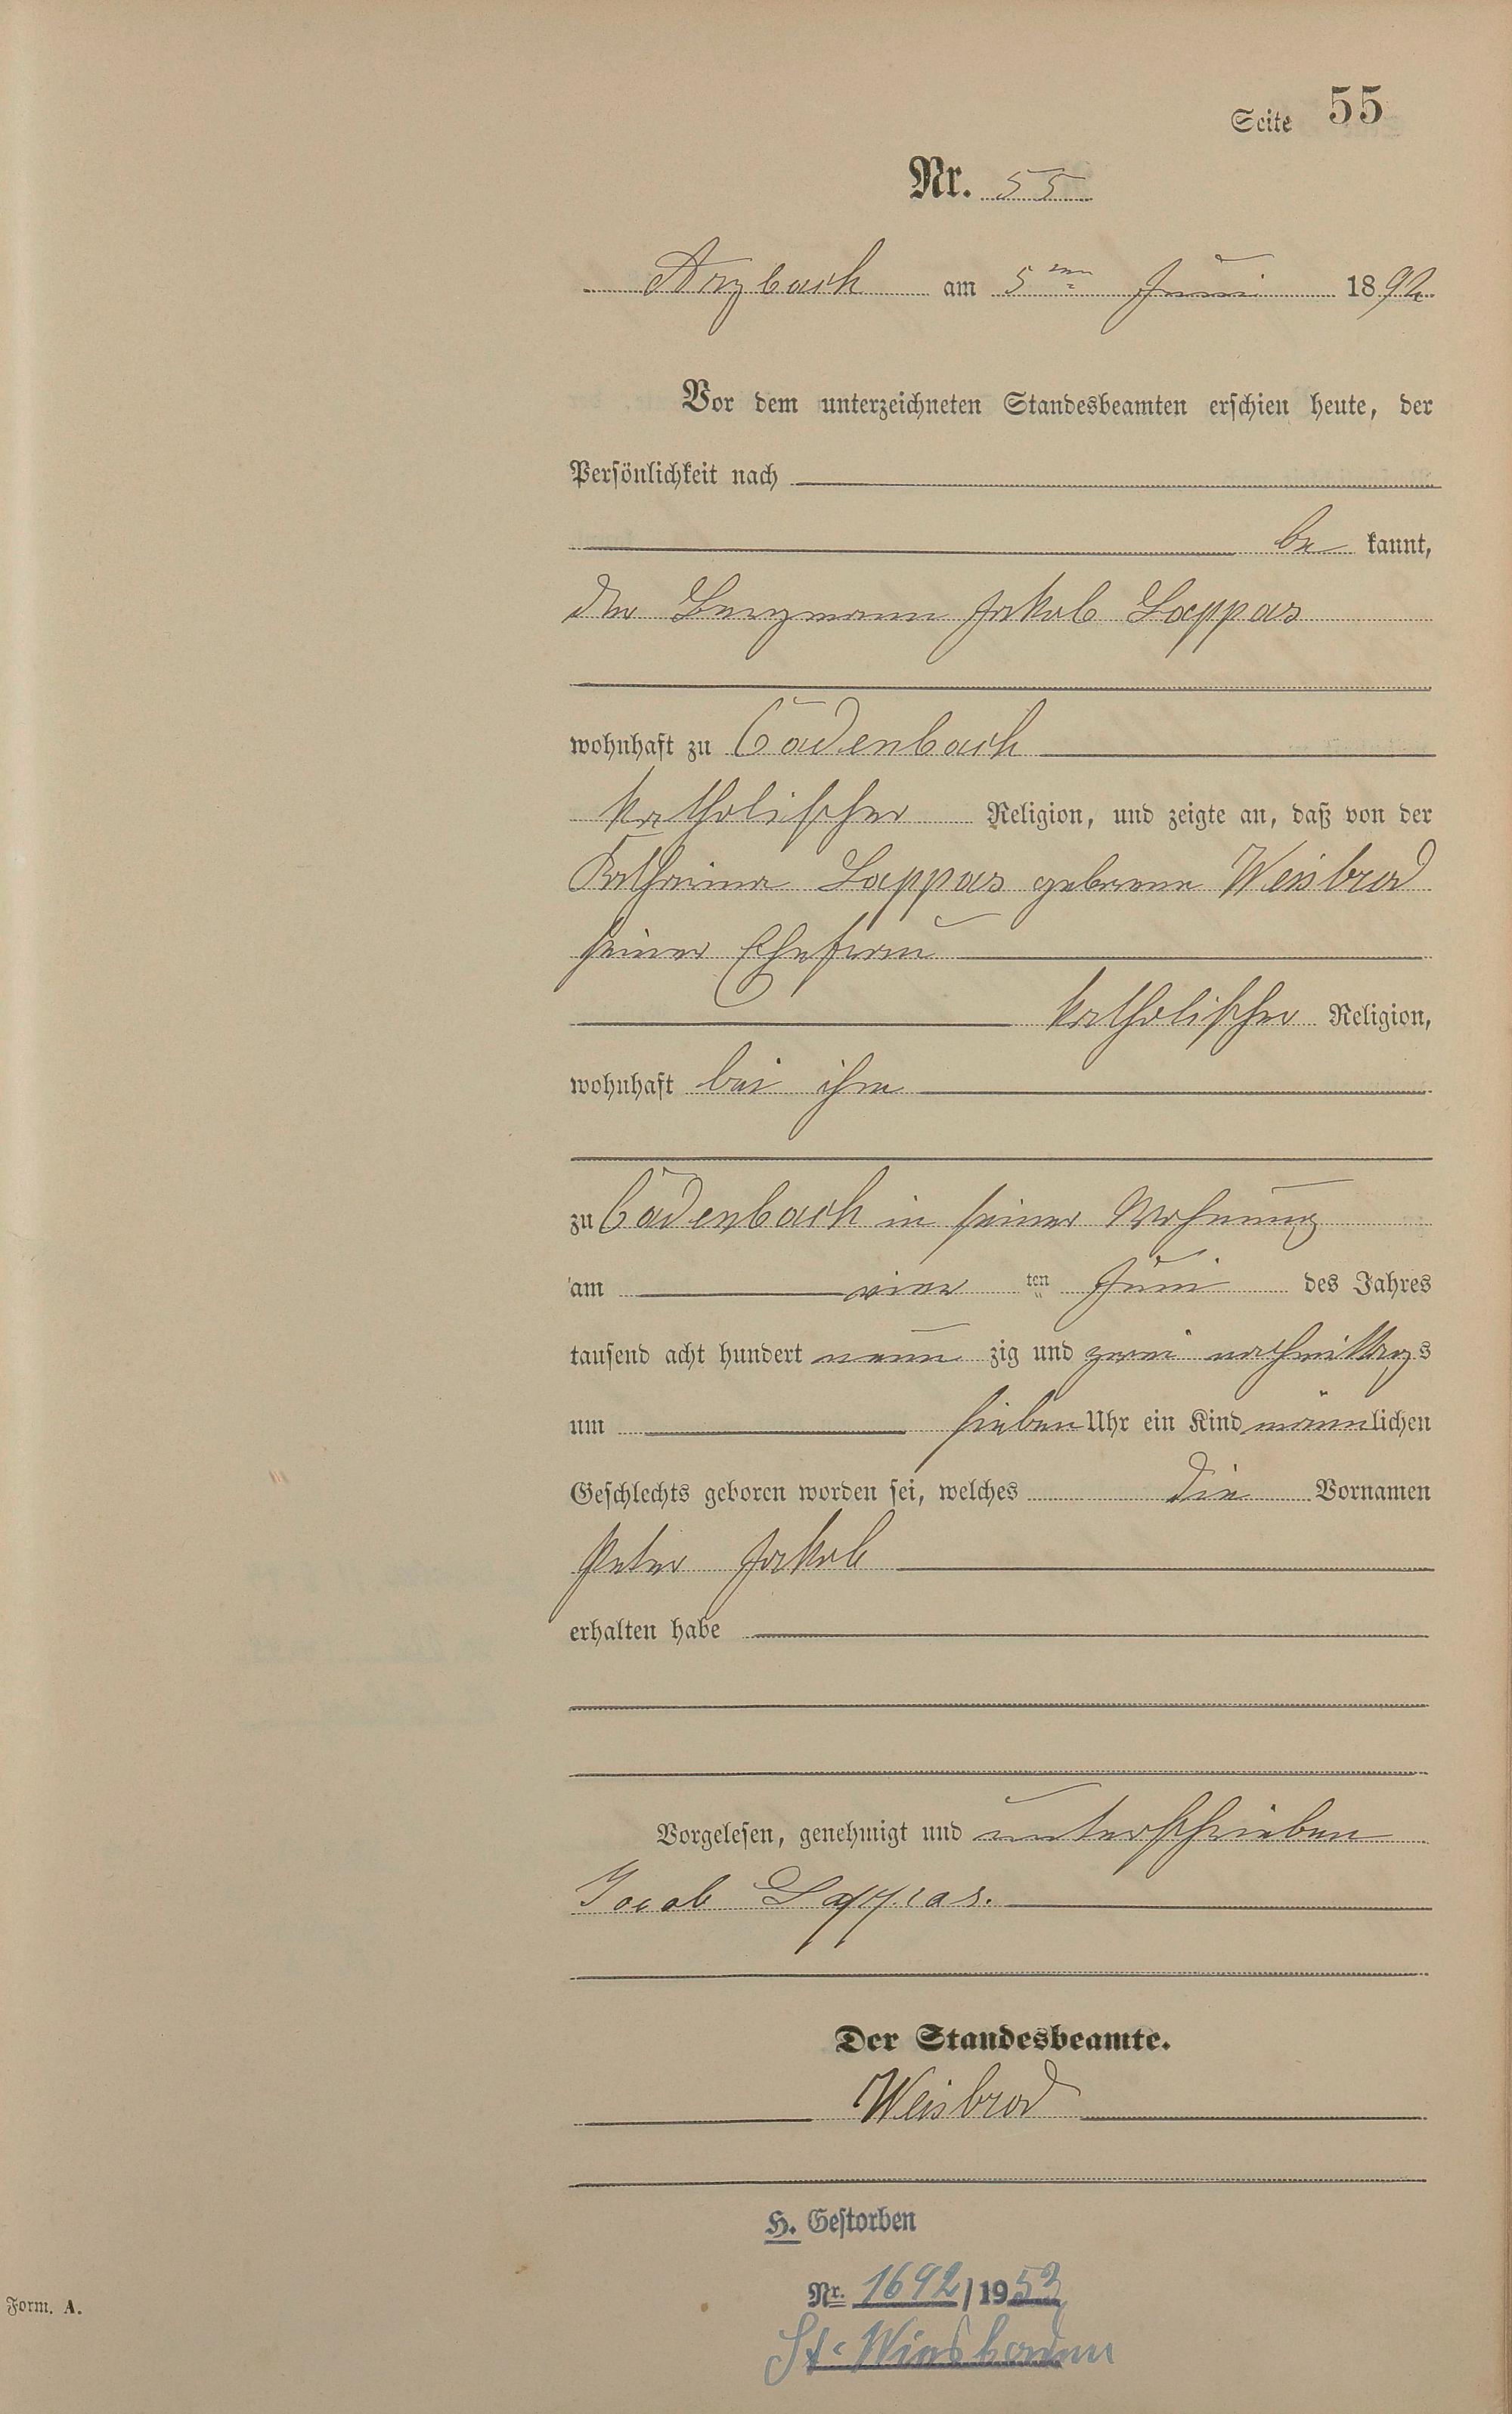 Seite 55
Nr. 55
Arzbach am 5ten Juni 1892
Vor dem unterzeichneten Standesbeamten erschien heute, der
Persönlichkeit nach
be kannt,
der Bergmann Jakob Lappas
wohnhaft zu Cadenbach
katholischer Religion, und zeigte an, daß von der
Katharina Lappas geborene Weisbrod
seiner Ehefrau
katholischer Religion,
wohnhaft bei ihm
zu Cadenbach in seiner Wohnung
am vier ten Juni des Jahres
tausend acht hundert neun zig und zwei nachmittags
um sieben Uhr ein Kind männlichen
Geschlechts geboren worden sei, welches die Vornamen
Peter Jakob
erhalten habe
Vorgelesen, genehmigt und unterschrieben
Jacob Lappas.
Der Standesbeamte.
Weisbrod
H. Gestorben
Nr. 1692/1953
St. Wiesbaden
Form. A.